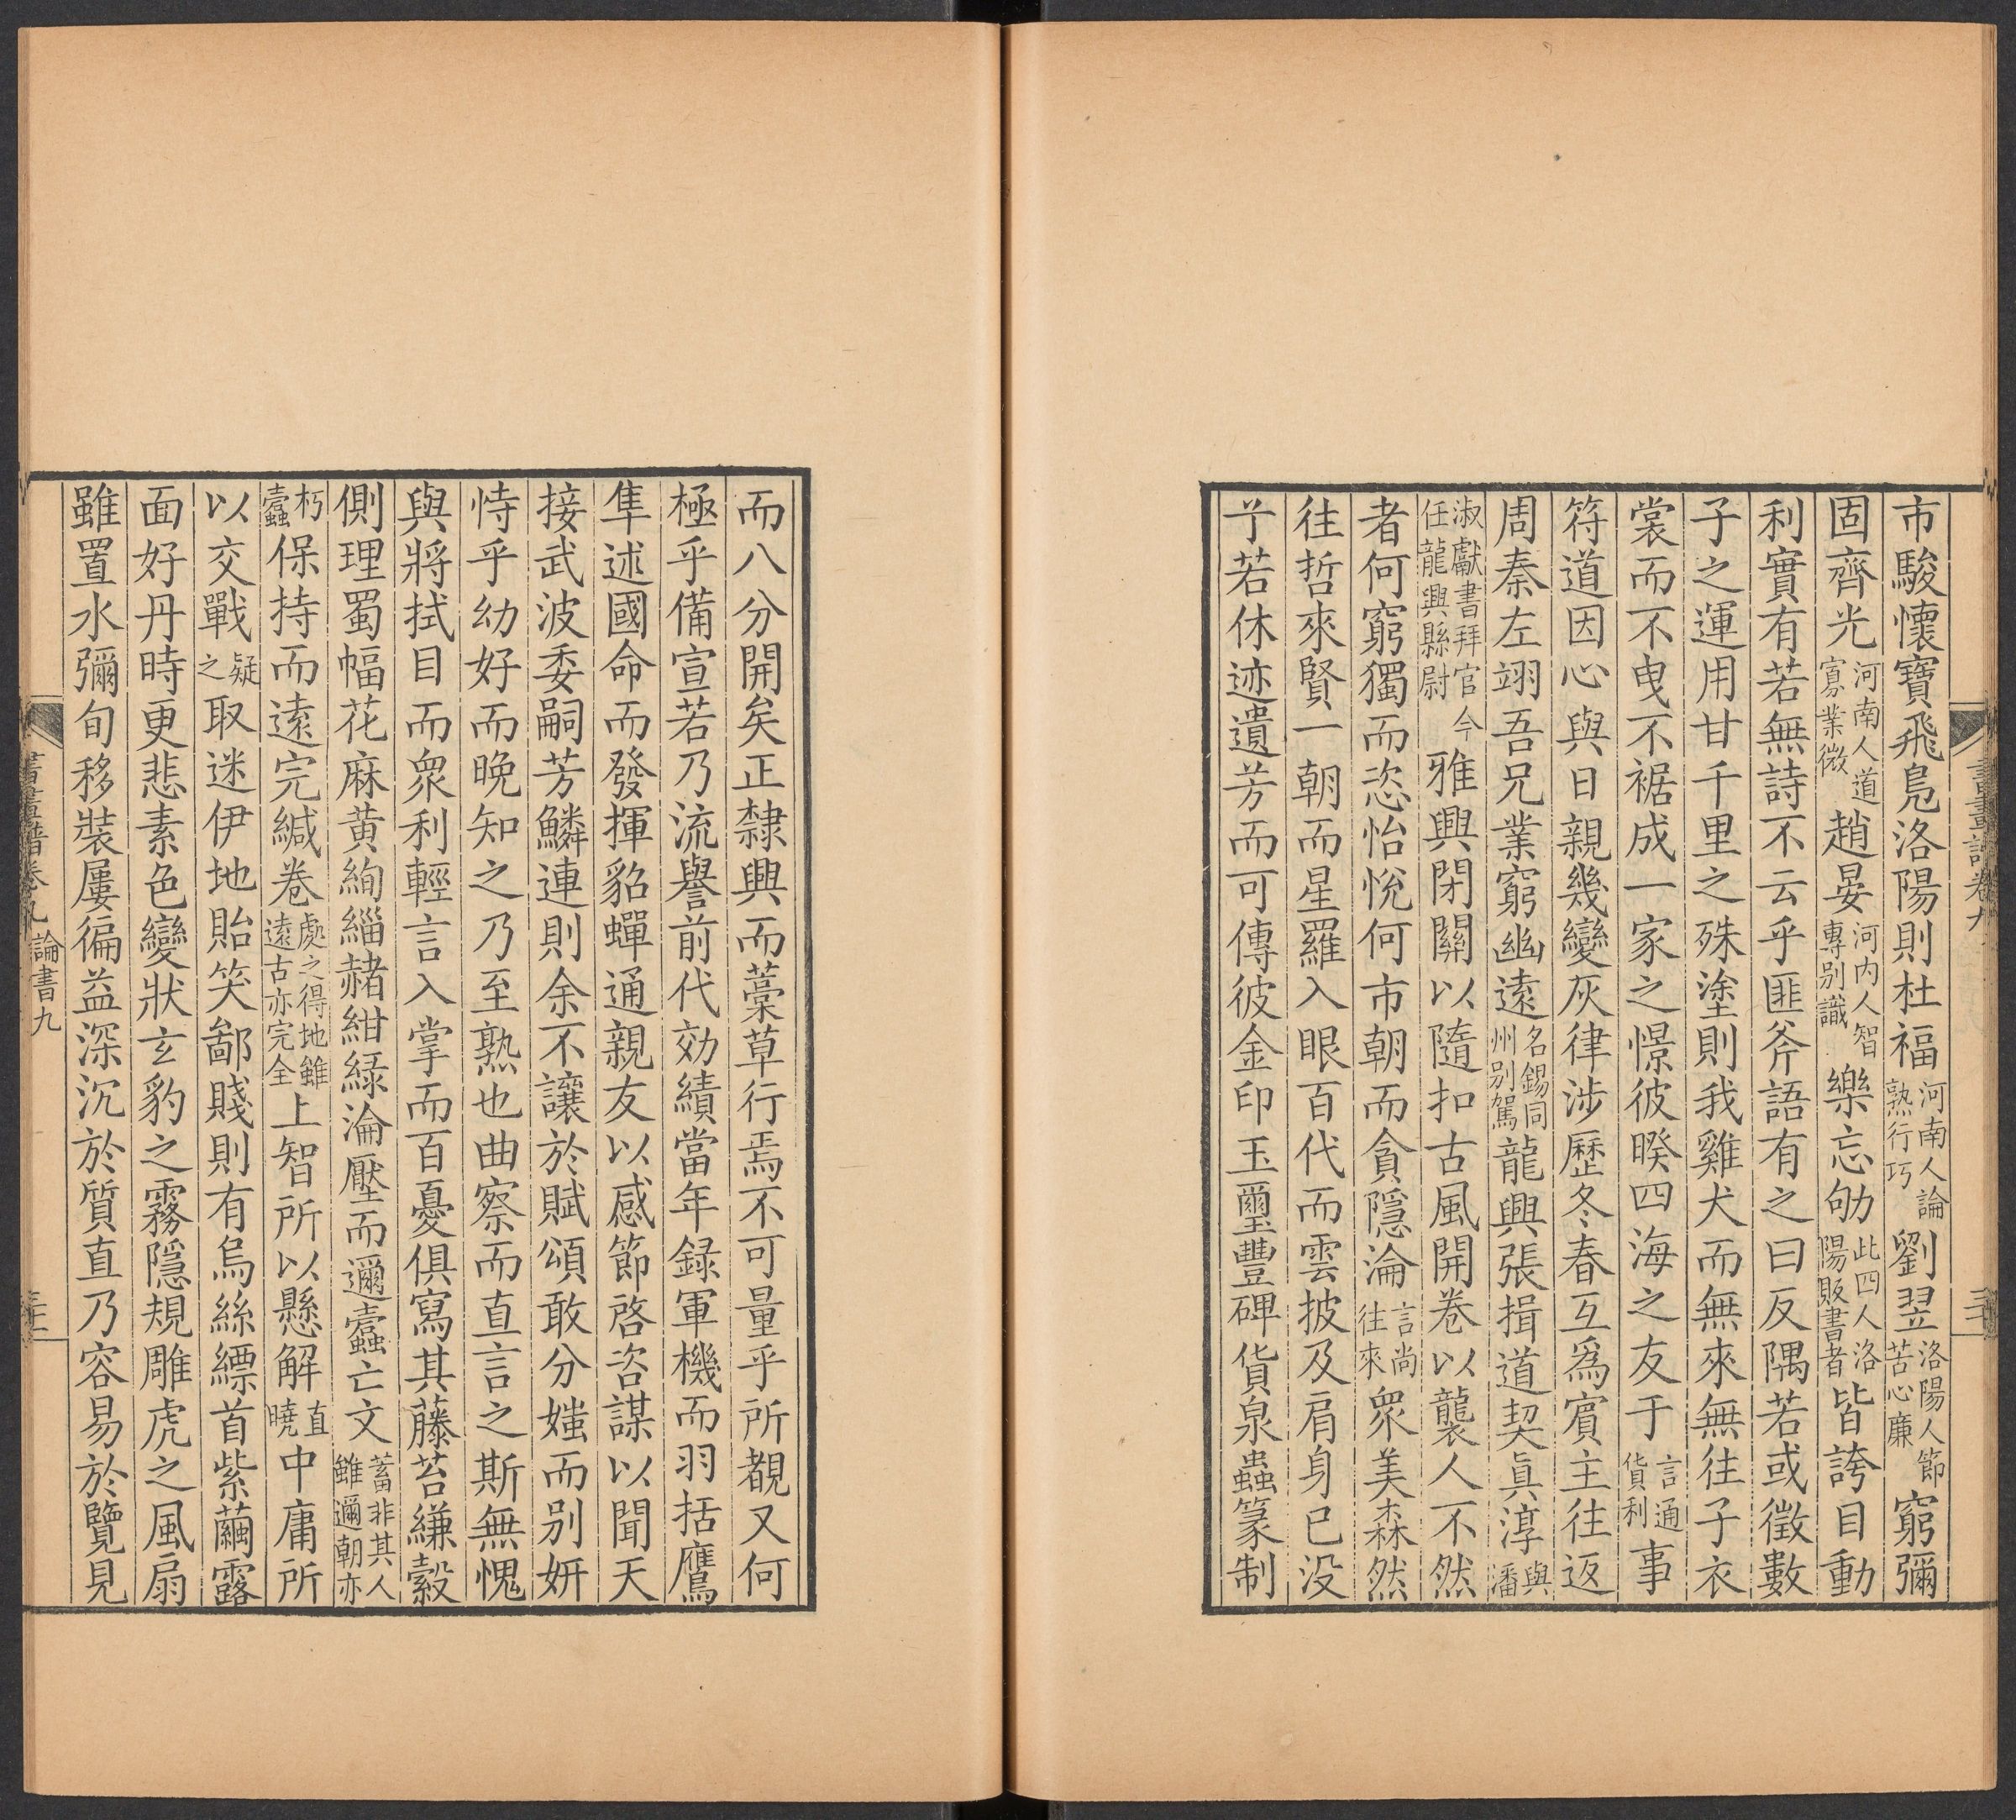 市駿懷寶飛鳧洛陽則杜福河南人論熟行巧劉翌洛陽人節苦心廉窮彌
固齊光河南人道寡業微趙晏河內人智專别識樂忘劬此四人洛陽販書者皆誇目動
利實有若無詩不云乎匪斧語有之曰反隅若或徵數
子之運用甘千里之殊塗則我雞犬而無來無往子衣
裳而不曳不裾成一家之憬彼暌四海之友于言通貨利事
符道因心與日親幾變灰律涉歷冬春互爲賓主往返
周秦左翊吾兄業窮幽遠名錫同州别駕龍興張揖道契眞淳與潘
淑獻書拜官今任龍興縣尉雅興閉關以隨扣古風開卷以襲人不然
者何窮獨而恣怡悅何市朝而貪隱淪言尚往來衆美森然
往哲來賢一朝而星羅入眼百代而雲披及肩身已没
兮若休迹遺芳而可傳彼金印玉璽豐碑貨泉蟲篆制
書畫譜卷九
而八分開矣正隸興而藁草行焉不可量乎所覩又何
極乎備宣若乃流譽前代効績當年録軍機而羽括鷹
隼述國命而發揮貂蟬通親友以感節啓咨謀以聞天
接武波委嗣芳鱗連則余不讓於賦頌敢分媸而别妍
恃乎幼好而晚知之乃至熟也曲察而直言之斯無愧
與將拭目而衆利輕言入掌而百憂俱寫其藤苔縑縠
側理蜀幅花麻黄絢緇赭紺緑淪壓而邇蠹亡文蓄非其人雖邇朝亦
朽蠹保持而遠完緘卷處之得地雖遠古亦完全上智所以懸解直曉中庸所
以交戰疑之取迷伊地貽笑鄙賤則有烏絲縹首紫薾露
面好丹時更悲素色變狀玄豹之霧隱規雕虎之風扇
雖置水彌旬移裝屢徧益深沉於質直乃容易於覽見
書畫譜卷九 論書九